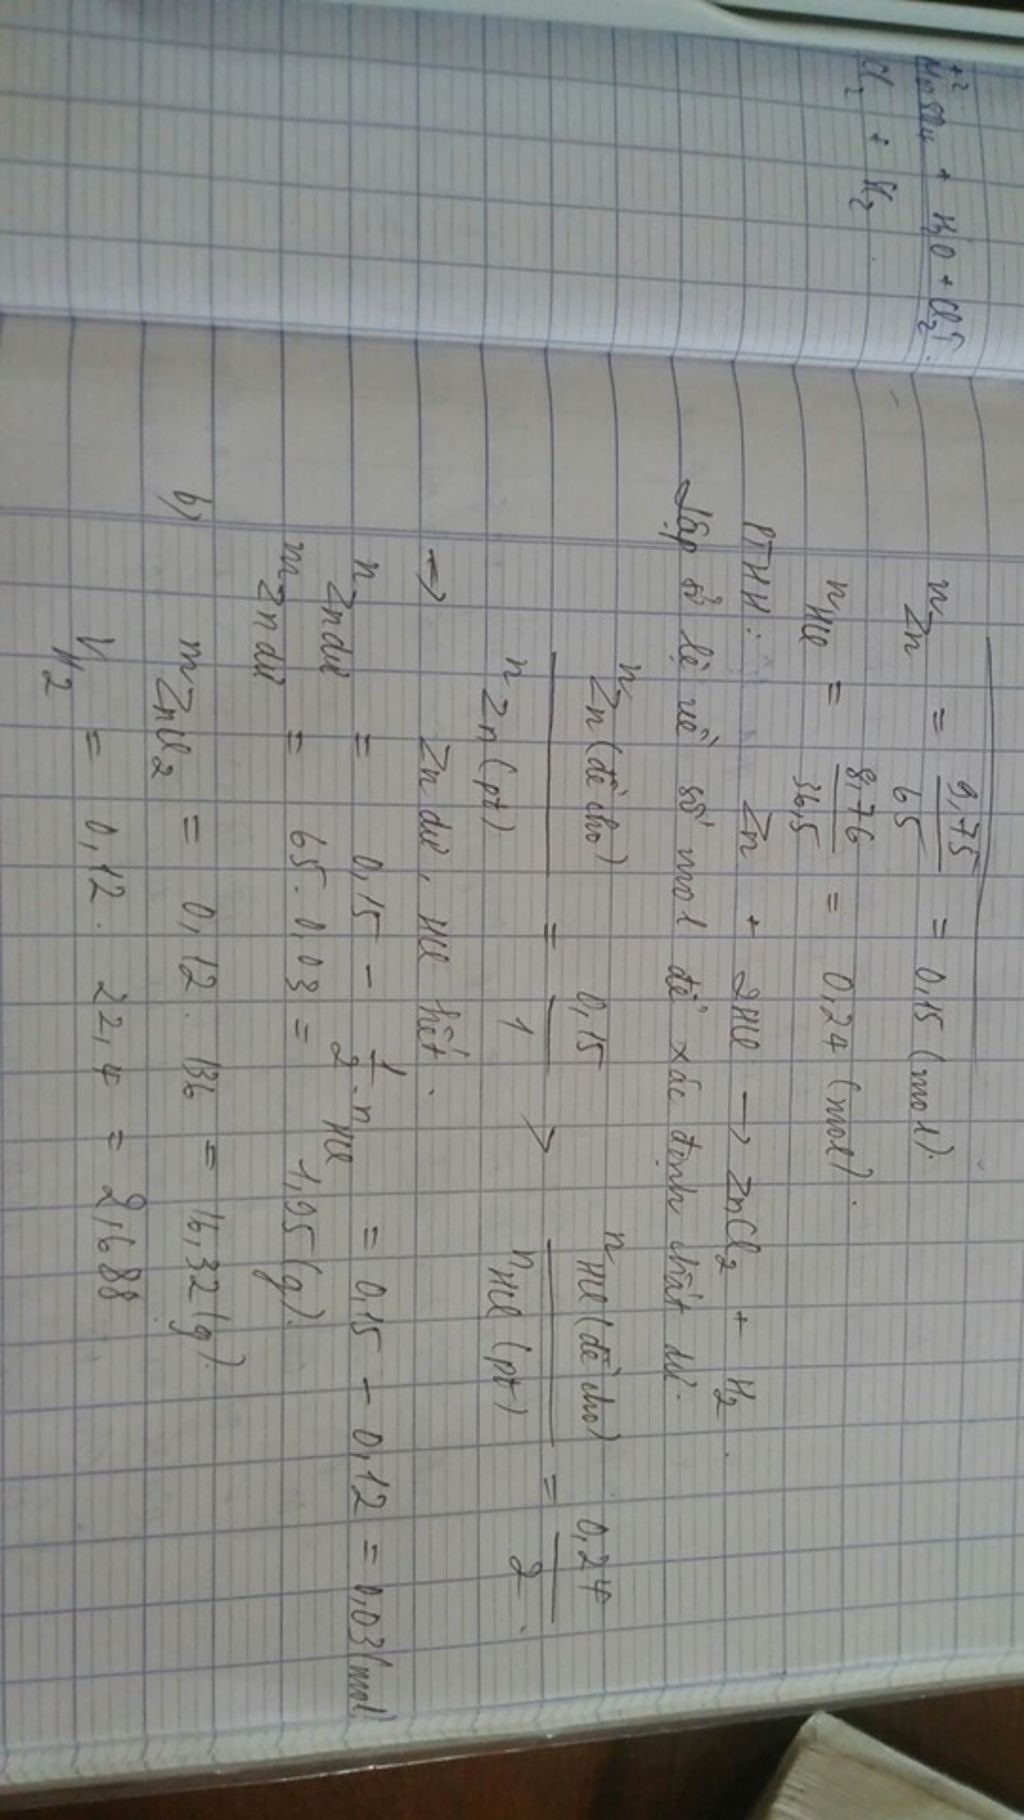 +2
MnSO4 + H2O + Cl2↑.
Cl2 + H2
nZn = 9,75/65 = 0,15 (mol).
nHCl = 8,76/36,5 = 0,24 (mol).
PTHH: Zn + 2HCl → ZnCl2 + H2.
Lập tỉ lệ về số mol để xác định chất dư.
nZn (đề cho)/nZn (pt) = 0,15/1 > nHCl (đề cho)/nHCl (pt) = 0,24/2.
→ Zn dư, HCl hết.
nZn dư = 0,15 - 1/2.nHCl = 0,15 - 0,12 = 0,03 (mol
mZn dư = 65.0,03 = 1,95 (g).
b) mZnCl2 = 0,12. 136 = 16,32 (g).
VH2 = 0,12. 22,4 = 2,688